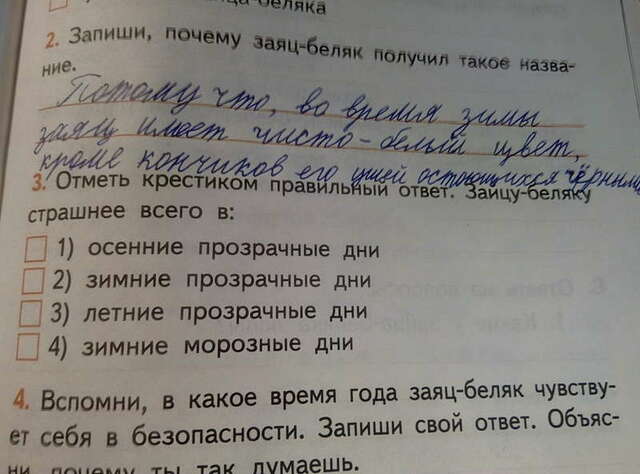 беляка
2. Запиши, почему заяц-беляк получил такое назва-
ние.
Потому что, во время зимы
заяц имеет чисто-белый цвет,
кроме кончиков его ушей остающихся чёрными
3. Отметь крестиком правильный ответ. Зайцу-беляку
страшнее всего в:
1) осенние прозрачные дни
2) зимние прозрачные дни
3) летние прозрачные дни
4) зимние морозные дни
4. Вспомни, в какое время года заяц-беляк чувству-
ет себя в безопасности. Запиши свой ответ. Объяс-
ни, почему ты так думаешь.